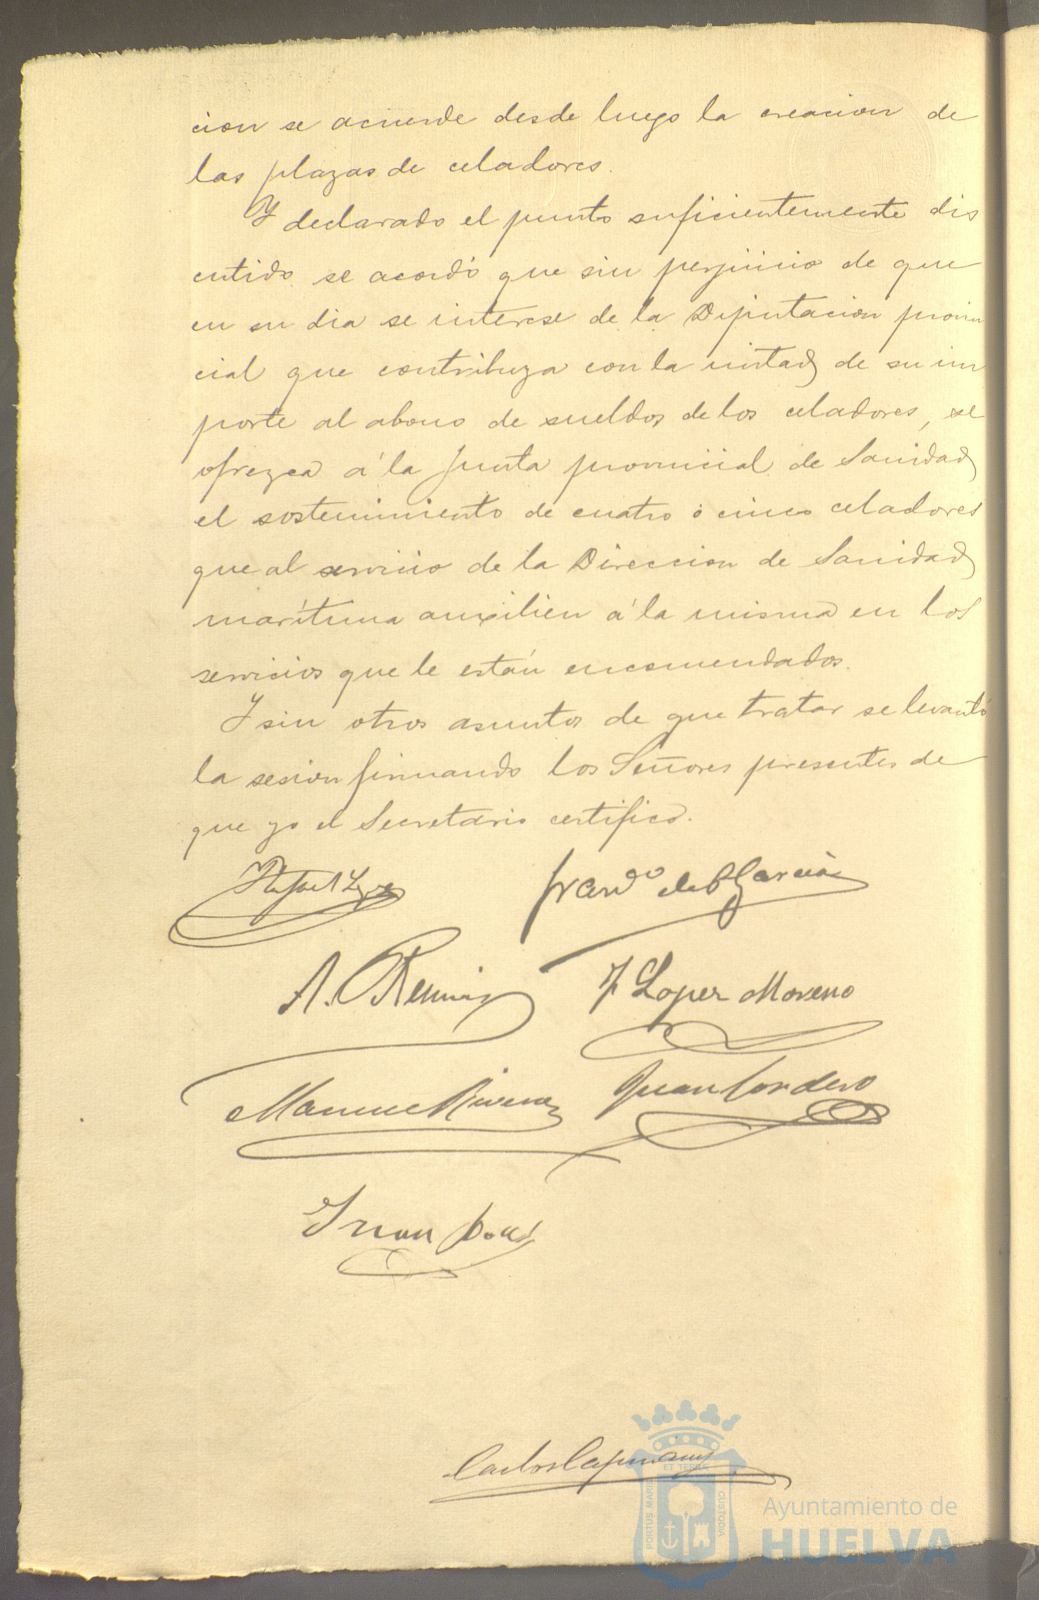 cion se acuerde desde luego la creacion de
las plazas de celadores.
Y declarado el punto suficientemente dis
cutido se acordó que sin perjuicio de que
en su dia se interese de la Diputacion provin
cial que contribuya con la mitad de su im
porte al abono de sueldos de los celadores, se
ofrezca á la Junta provincial de Sanidad
el sostenimiento de cuatro ó cinco celadores
que al servicio de la Direccion de Sanidad
marítima auxilien á la misma en los
servicios que le están encomendados.
Y sin otros asuntos de que tratar se levantó
la sesion firmando los Señores presentes de
que yo el Secretario certifico.
Rafael Lopez
Franº de P Garcia
A.
F Lopez Moreno
Manuel Rivera
Juan Cordero
Juan
Carlos
PORTUS MARIS
ET TERRAE
CUSTODIA
Ayuntamiento de
HUELVA